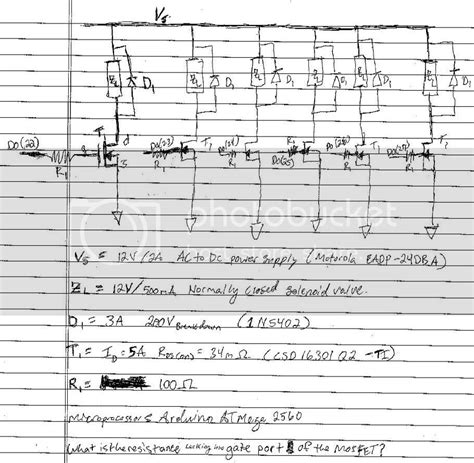 Vs
ZL D1 ZL D1 ZL D1 ZL D1 ZL D1 ZL D1
T d
DO(22) g s R1
DO(23) R1 T1
DO(24) R1
R1 DO(25)
DO(26) R1 T1
R1 T1
photobucket
Vs = 12V/2A AC to DC power supply (Motorola EADP-24DB A)
ZL = 12V/500mA Normally Closed Solenoid valve.
D1 = 3A 200V Breakdown (1N5402)
T1 = ID = 5A RDS(on) = 34mΩ (CSD16301Q2 - TI)
R1 = 100Ω
microprocessor = Arduino ATMega 2560
What is the resistance looking into gate port of the MOSFET?